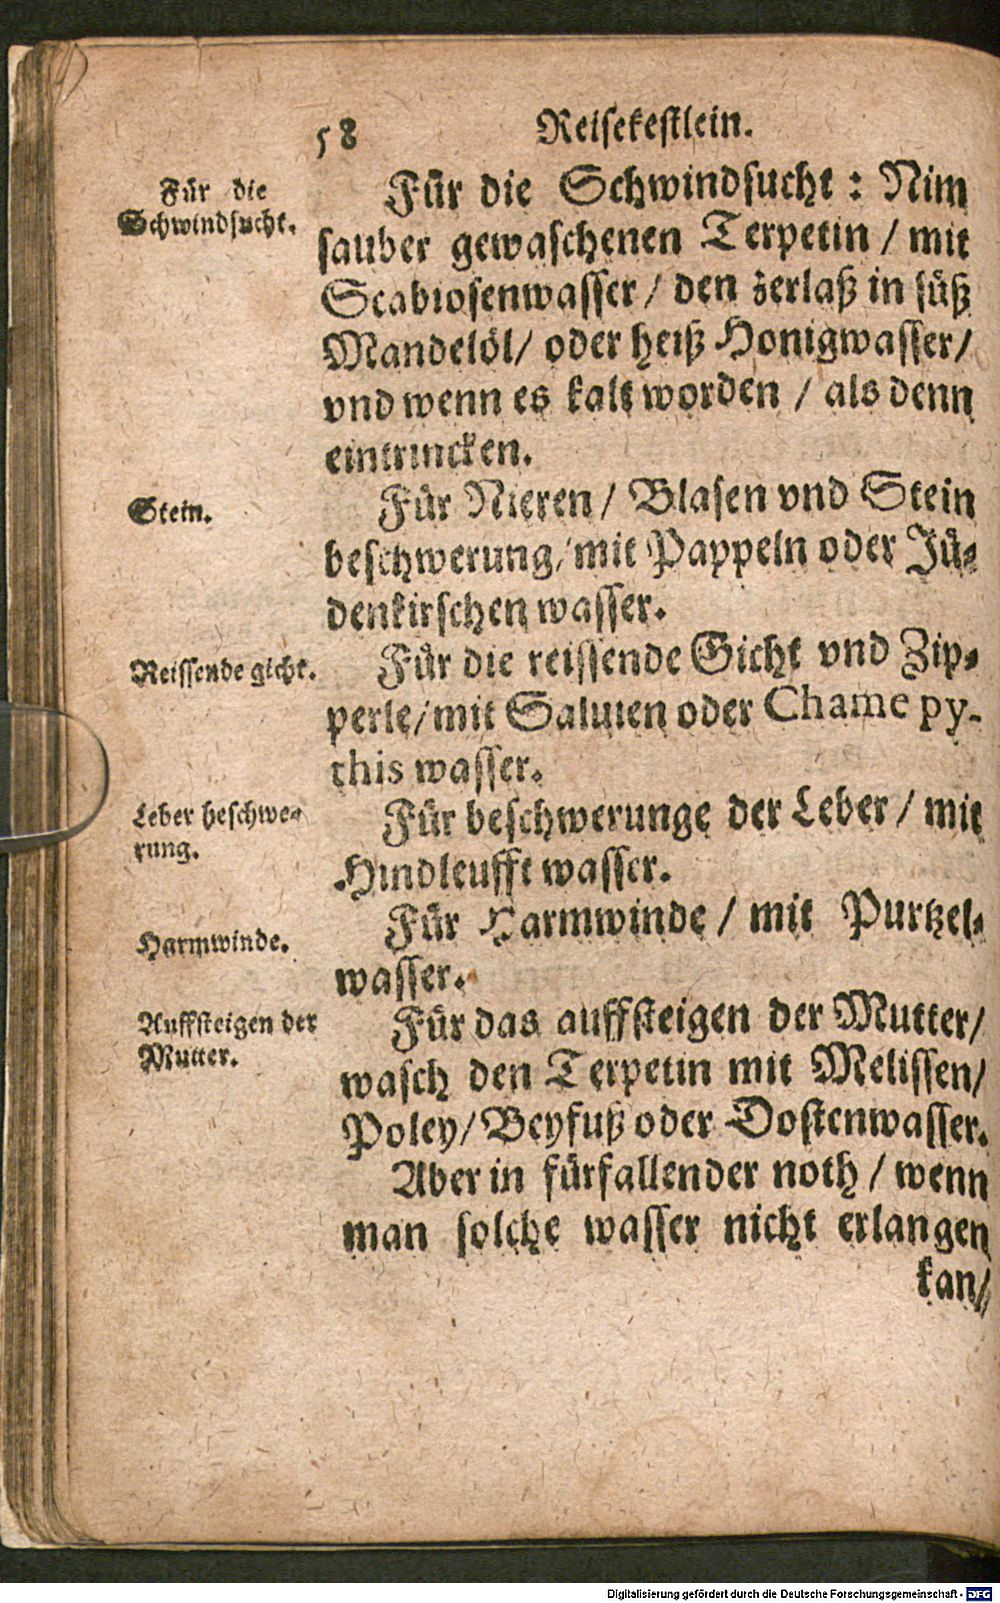 58 Reisekestlein.
Für die
Schwindsucht.
Für die Schwindsucht: Nim
sauber gewaschenen Terpetin / mit
Scabiosenwasser / den zerlaß in süß
Mandelöl / oder heiß Honigwasser /
vnd wenn es kalt worden / als denn
eintrincken.
Stein.
Für Nieren / Blasen vnd Stein
beschwerung / mit Pappeln oder Jü-
denkirschen wasser.
Reissende gicht.
Für die reissende Gicht vnd Zip-
perle / mit Saluien oder Chame py-
this wasser.
Leber beschwe-
rung.
Für beschwerunge der Leber / mit
Hindleufft wasser.
Harmwinde.
Für Harmwinde / mit Purtzel-
wasser.
Auffsteigen der
Mutter.
Für das auffsteigen der Mutter /
wasch den Terpetin mit Melissen /
Poley / Beyfuß oder Dostenwasser.
Aber in fürfallender noth / wenn
man solche wasser nicht erlangen
kan /
Digitalisierung gefördert durch die Deutsche Forschungsgemeinschaft - DFG